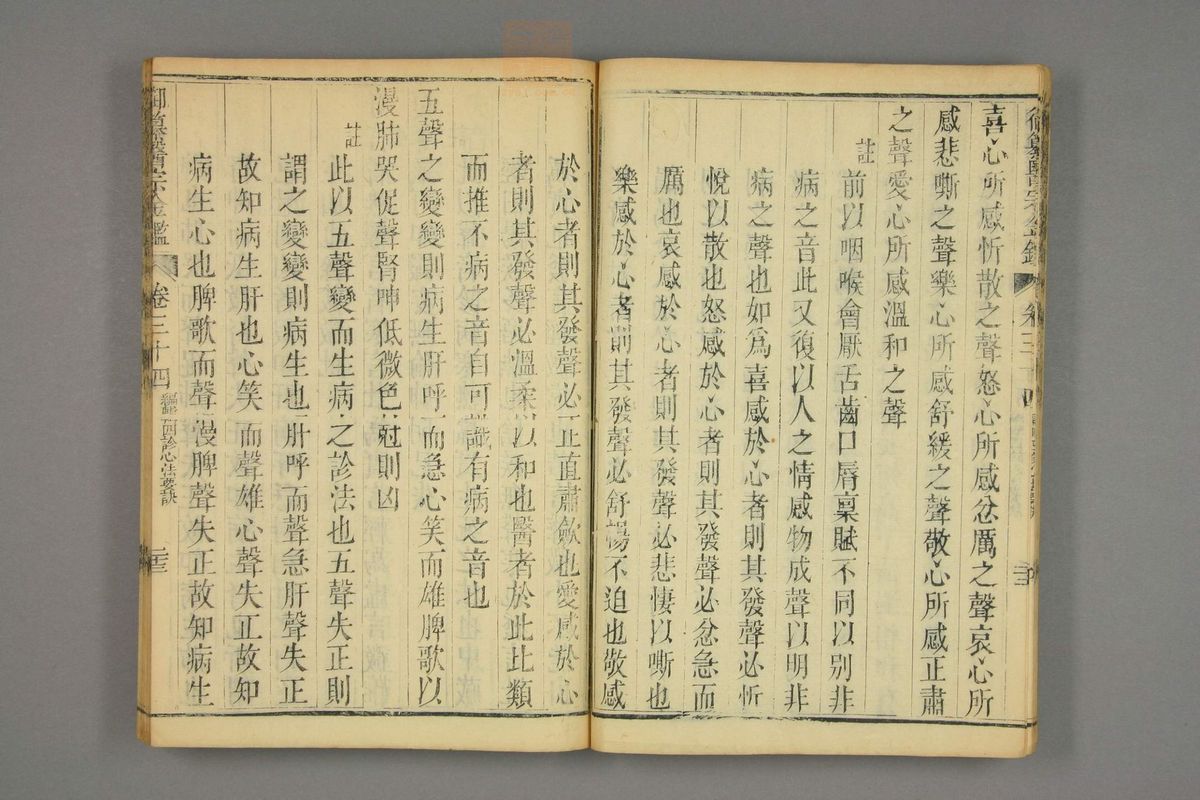 喜心所感忻散之聲怒心所感忿厲之聲哀心所
感悲嘶之聲樂心所感舒緩之聲敬心所感正肅
之聲愛心所感溫和之聲
註
前以咽喉會厭舌齒口脣稟賦不同以別非
病之音此又復以人之情感物成聲以明非
病之聲也如為喜感於心者則其發聲必忻
悅以散也怒感於心者則其發聲必忿急而
厲也哀感於心者則其發聲必悲悽以嘶也
樂感於心者則其發聲必舒暢不迫也敬感
於心者則其發聲必正直肅歛也愛感於心
者則其發聲必溫柔以和也醫者於此比類
而推不病之音自可識有病之音也
五聲之變變則病生肝呼而急心笑而雄脾歌以
漫肺哭促聲腎呻低微色尅則凶
註
此以五聲變而生病之診法也五聲失正則
謂之變變則病生也肝呼而聲急肝聲失正
故知病生肝也心笑而聲雄心聲失正故知
病生心也脾歌而聲漫脾聲失正故知病生
御纂醫宗金鑑
卷三十四
編輯四診心法要訣
二十三